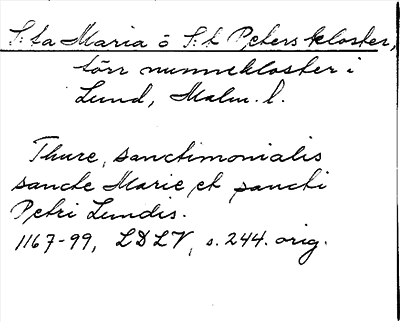 S:ta Maria o S:t Peters kloster,
förr nunnekloster i
Lund, Malm. l.
Thure, sanctimonialis
sancte Marie et sancti
Petri Lundis.
1167-99, LDLV, s. 244. orig.